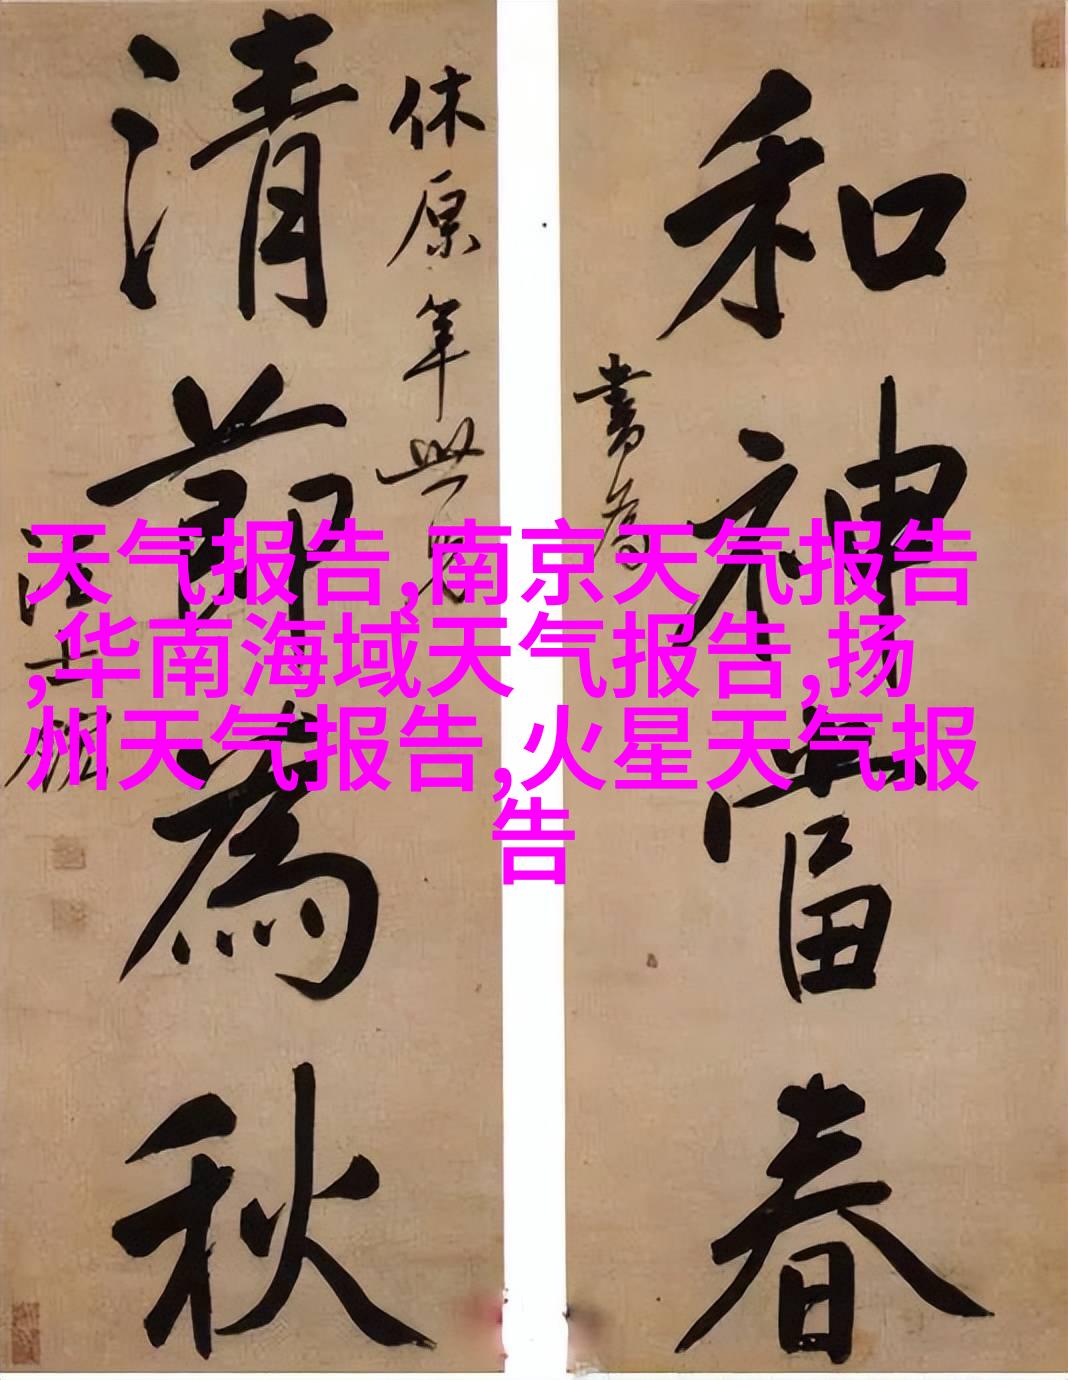 和神當春
書為
休原年世兄
清節為秋
汪士鋐
天气报告,南京天气报告
,华南海域天气报告,扬
州天气报告,火星天气报
告